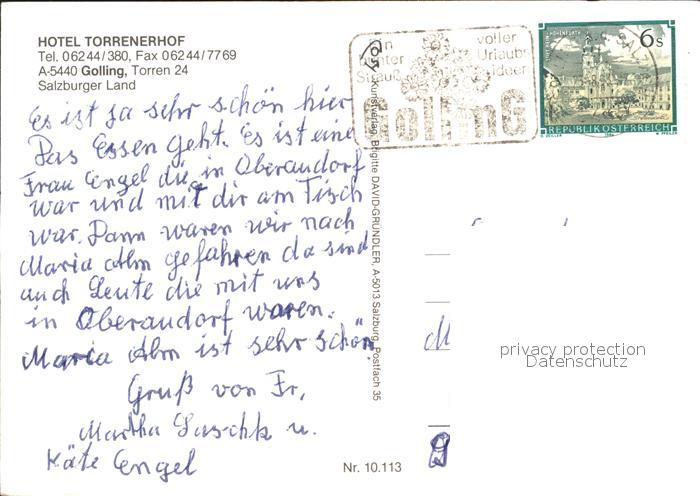 HOTEL TORRENERHOF
Tel. 06244/380, Fax 06244/7769
A-5440 Golling, Torren 24
Salzburger Land
Es ist ja sehr schön hier
Das Essen geht. Es ist eine
Frau Engel die in Oberaudorf
war und mit dir am Tisch
war. Dann waren wir nach
Maria Alm gefahren da sind
auch Leute die mit uns
in Oberaudorf waren.
Maria Alm ist sehr schön
Gruß von Fr,
Martha Laschk u.
Käte Engel
Nr. 10.113
Kunstverlag Brigitte DAVID-GRÜNDLER, A-5013 Salzburg, Postfach 35
Ein voller
bunter Urlaubs
Strauß ideen
GollinG
6s
REPUBLIK ÖSTERREICH
M
privacy protection
Datenschutz